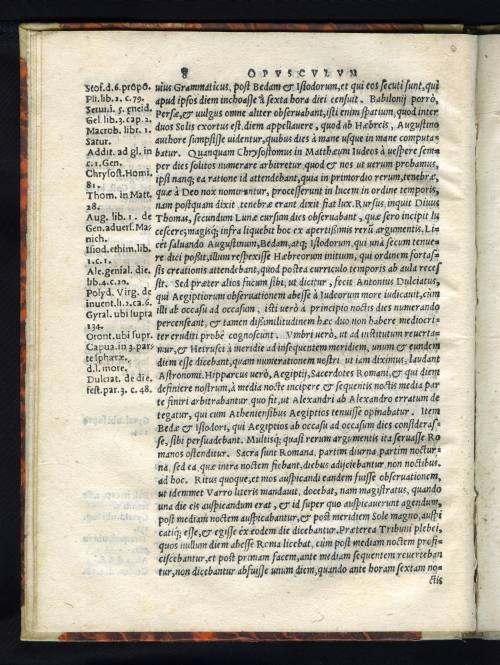 8 OPVSCVLVM
Stof.d.6.propo.
Pli.lib.2.c.79.
Serui.i. 5. eneid.
Gel.lib.3.cap.2.
Macrob. lib. 1.
Satur.
Addit. ad gl. in
c.1.Gen.
Chrysost.Homi.
81.
Thom. in Matt.
28.
Aug. lib. 1. de
Gen.aduers.Ma-
nich.
Isiod.ethim.lib.
1.c.1.
Ale.genial. die.
lib.4.c.20.
Polyd. Virg. de
inuent.li.2.ca.6.
Gyral. ubi supra
134.
Oront.ubi supr.
Capua.in 3.par
te sphæræ.
d.l.more.
Dulciat. de die.
fest.par.3. c.48.
uius Grammaticus, post Bedam & Isiodorum, et qui eos secuti sunt, qui
apud ipsos diem inchoasse à sexta hora diei censuit. Babilonij porrò,
Persæ, & uulgus omne aliter obseruabant, isti enim spatium, quod inter
duos Solis exortus est, diem appellauere, quod ab Hæbreis, Augustino
authore sumpsisse uidentur, quibus dies à mane usque in mane computa
batur. Quanquam Chrysostomus in Matthæum Iudeos à uespere sem-
per dies solitos numerare arbitretur quod & nos ut uerum probamus,
ipsi nanq; ea ratione id attendebant, quia in primordio rerum, tenebræ,
quæ à Deo nox nominantur, processerunt in lucem in ordine temporis,
nam postquam dixit tenebræ erant dixit fiat lux. Rursus, inquit Diuus
Thomas, secundum Lunæ cursum dies obseruabant, quæ sero incipit lu
cescere; magisq; infra liquebit hoc ex apertissimis rerū argumentis. Li-
cet saluando Augustinum, Bedam, atq; Isiodorum, qui unà secum tenue-
re dici possit, illum respexisse Hæbreorum initium, qui ordinem fortas-
sis creationis attendebant, quod postea curriculo temporis ab aula reces
sit. Sed præter alios fucum sibi, ut dicitur, fecit Antonius Dulciatus,
qui Aegiptiorum obseruationem abesse à Iudeorum more iudicauit, cùm
illi ab occasu ad occasum, isti uerò à principio noctis dies numerando
percenseant, & tamen dissimilitudinem hæc duo non habere mediocri-
ter eruditi probè cognoscunt. Vmbri uerò, ut ad institutum reuerta-
mur, & Hetrusci à meridie ad insequentem meridiem, unum & eundem
diem esse dicebant, quam numerationem nostri ut iam diximus, laudant
Astronomi. Hipparcus uerò, Aegiptij, Sacerdotes Romani, & qui diem
definiere nostrum, à media nocte incipere & sequentis noctis media par
te finiri arbitrabantur quo fit, ut Alexandri ab Alexandro erratum de
tegatur, qui cum Atheniensibus Aegiptios tenuisse opinabatur. Item
Bedæ & Isiodori, qui Aegiptios ab occasu ad occasum dies considèras-
se, sibi persuadebant. Multisq; quasi rerum argumentis ita seruasse Ro
manos ostenditur. Sacra sunt Romana, partim diurna, partim noctur-
na, sed ea quæ intra noctem fiebant, diebus adijciebantur non noctibus.
ad hoc. Ritus quoque, et mos auspicandi eandem fuisse obseruationem,
ut idemmet Varro literis mandauit, docebat, nam magistratus, quando
una die eis auspicandum erat, & id super quo auspicauerunt agendum,
post mediam noctem auspicabantur, & post meridiem Sole magno, auspi
catiq; esse, & egisse ex eodem die dicebantur. Præterea Tribuni plebei,
quos nullum diem abesse Roma licebat, cùm post mediam noctem profi-
ciscebantur, et post primam facem, ante mediam sequentem reuerteban
tur, non dicebantur abfuisse unum diem, quando ante horam sextam no-
ctis